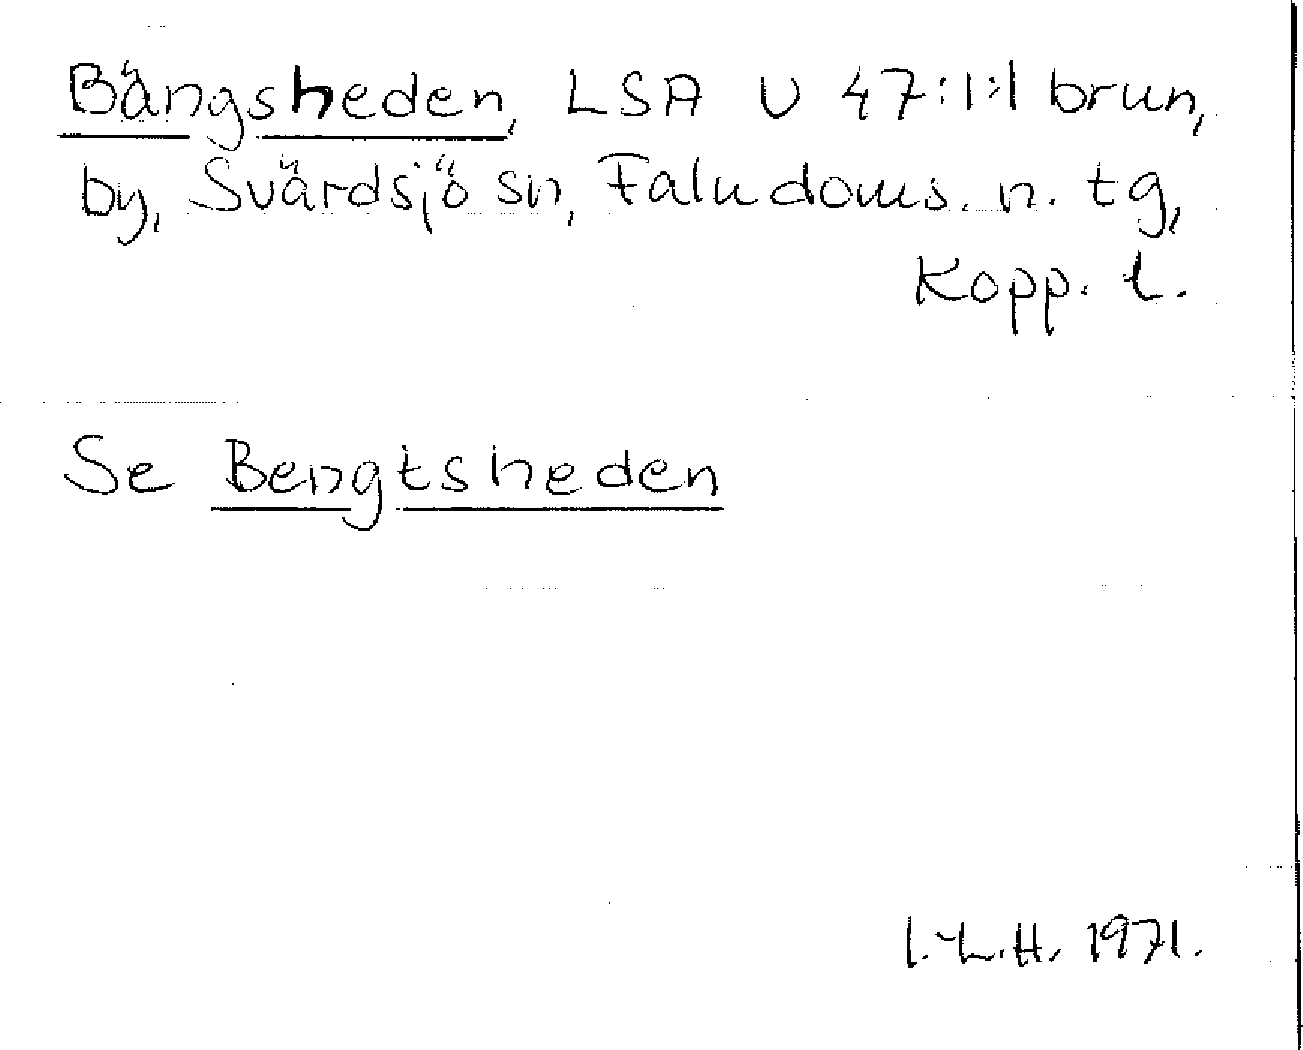 Bängsheden, LSA U 47:1:1 brun,
by, Svärdsjö sn, Falu doms. n. tg,
Kopp. l.
Se Bengtsheden
I.-L.H. 1971.